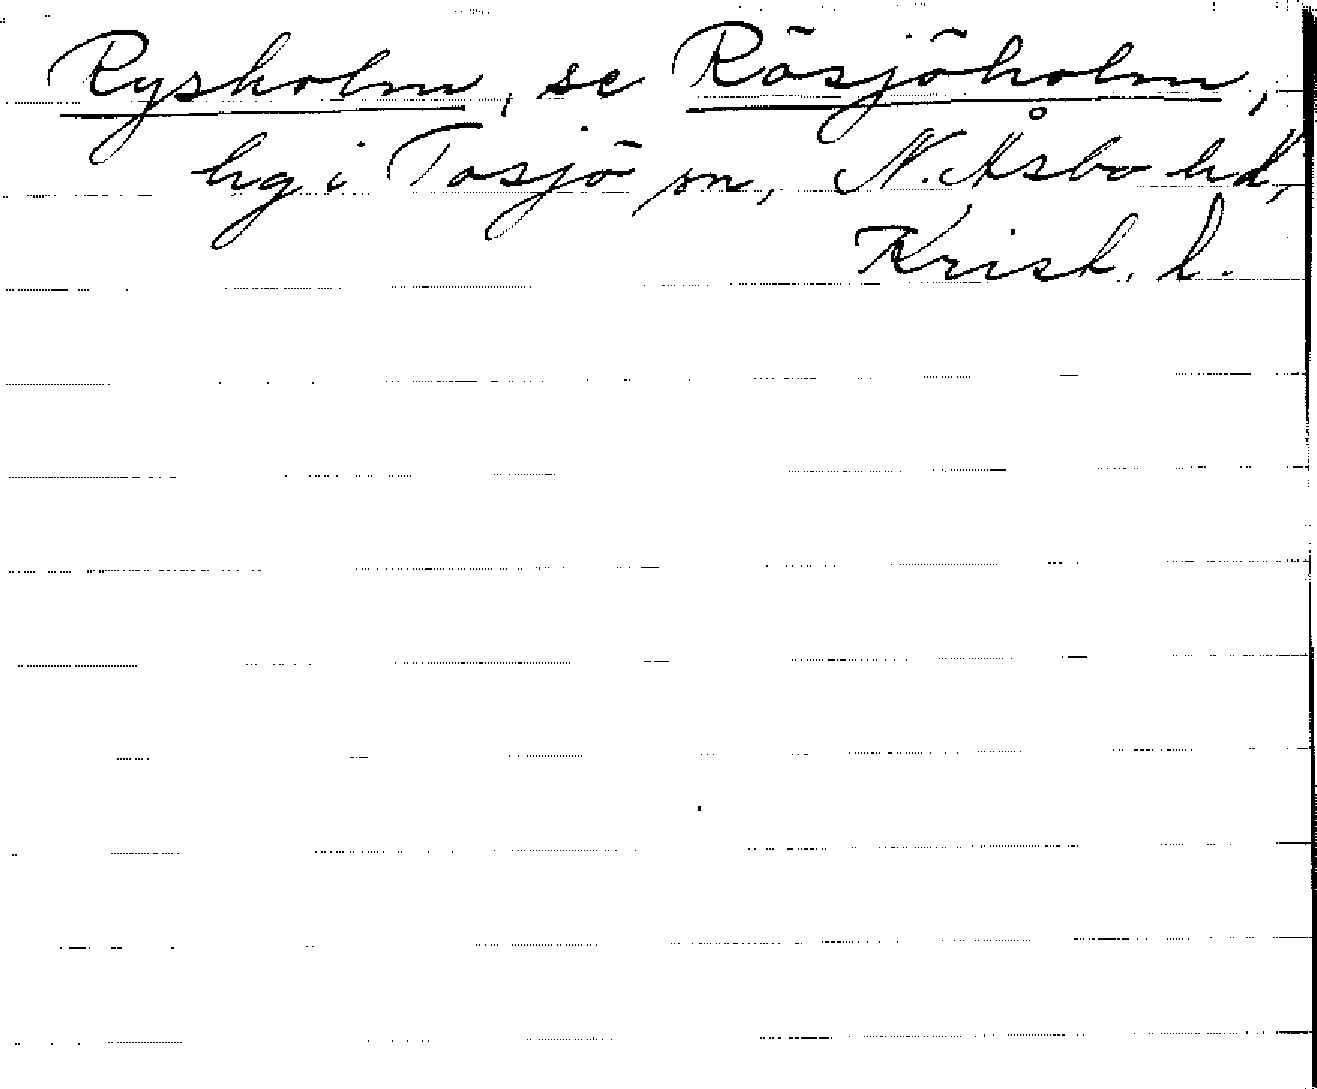 Rysholm, se Rösjöholm,
hg i Tosjö sn, N. Åsbo hd,
Krist. l.